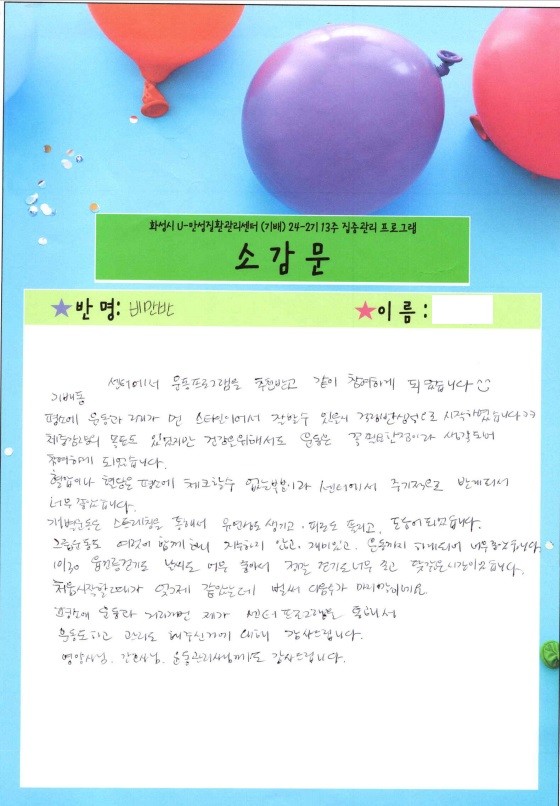 화성시 U-만성질환관리센터 (기배) 24-2기 13주 집중관리 프로그램
소감문
반 명: 비만반
이 름 :
센터에서 운동프로그램을 추천받고 같이 참여하게 되었습니다
기배동
평소에 운동과 거리가 먼 스타일이어서 잘할수 있을지 걱정반 으로 시작하였습니다
체중감량의 목표도 있었지만 건강을위해서도 운동은 꼭 필요한것이라 생각되어
참여하게 되었습니다.
혈압이나 혈당을 평소에 체크할수 없는부분이라 센터에서 주기적으로 받게되서
너무 좋았습니다.
개별운동은 스트레칭을 통해서 유연성도 생기고, 피로도 풀리고, 도움이 되었습니다.
그룹운동도 여럿이 함께 하니 지루하지 않고, 재미있고, 운동까지 하게되어 너무좋았습니다.
걷기도 날씨도 너무 좋아서 걷기도 너무 좋고 시간이었습니다.
처음시작할때가 엊그제 같았는데 벌써 다음주가 마지막이네요.
평소에 운동과 거리가먼 제가 센터 프로그램을 통해서
운동도하고 관리도 해주신거에 대해 감사드립니다.
영양사님, 간호사님, 운동관리사님께도 감사드립니다.